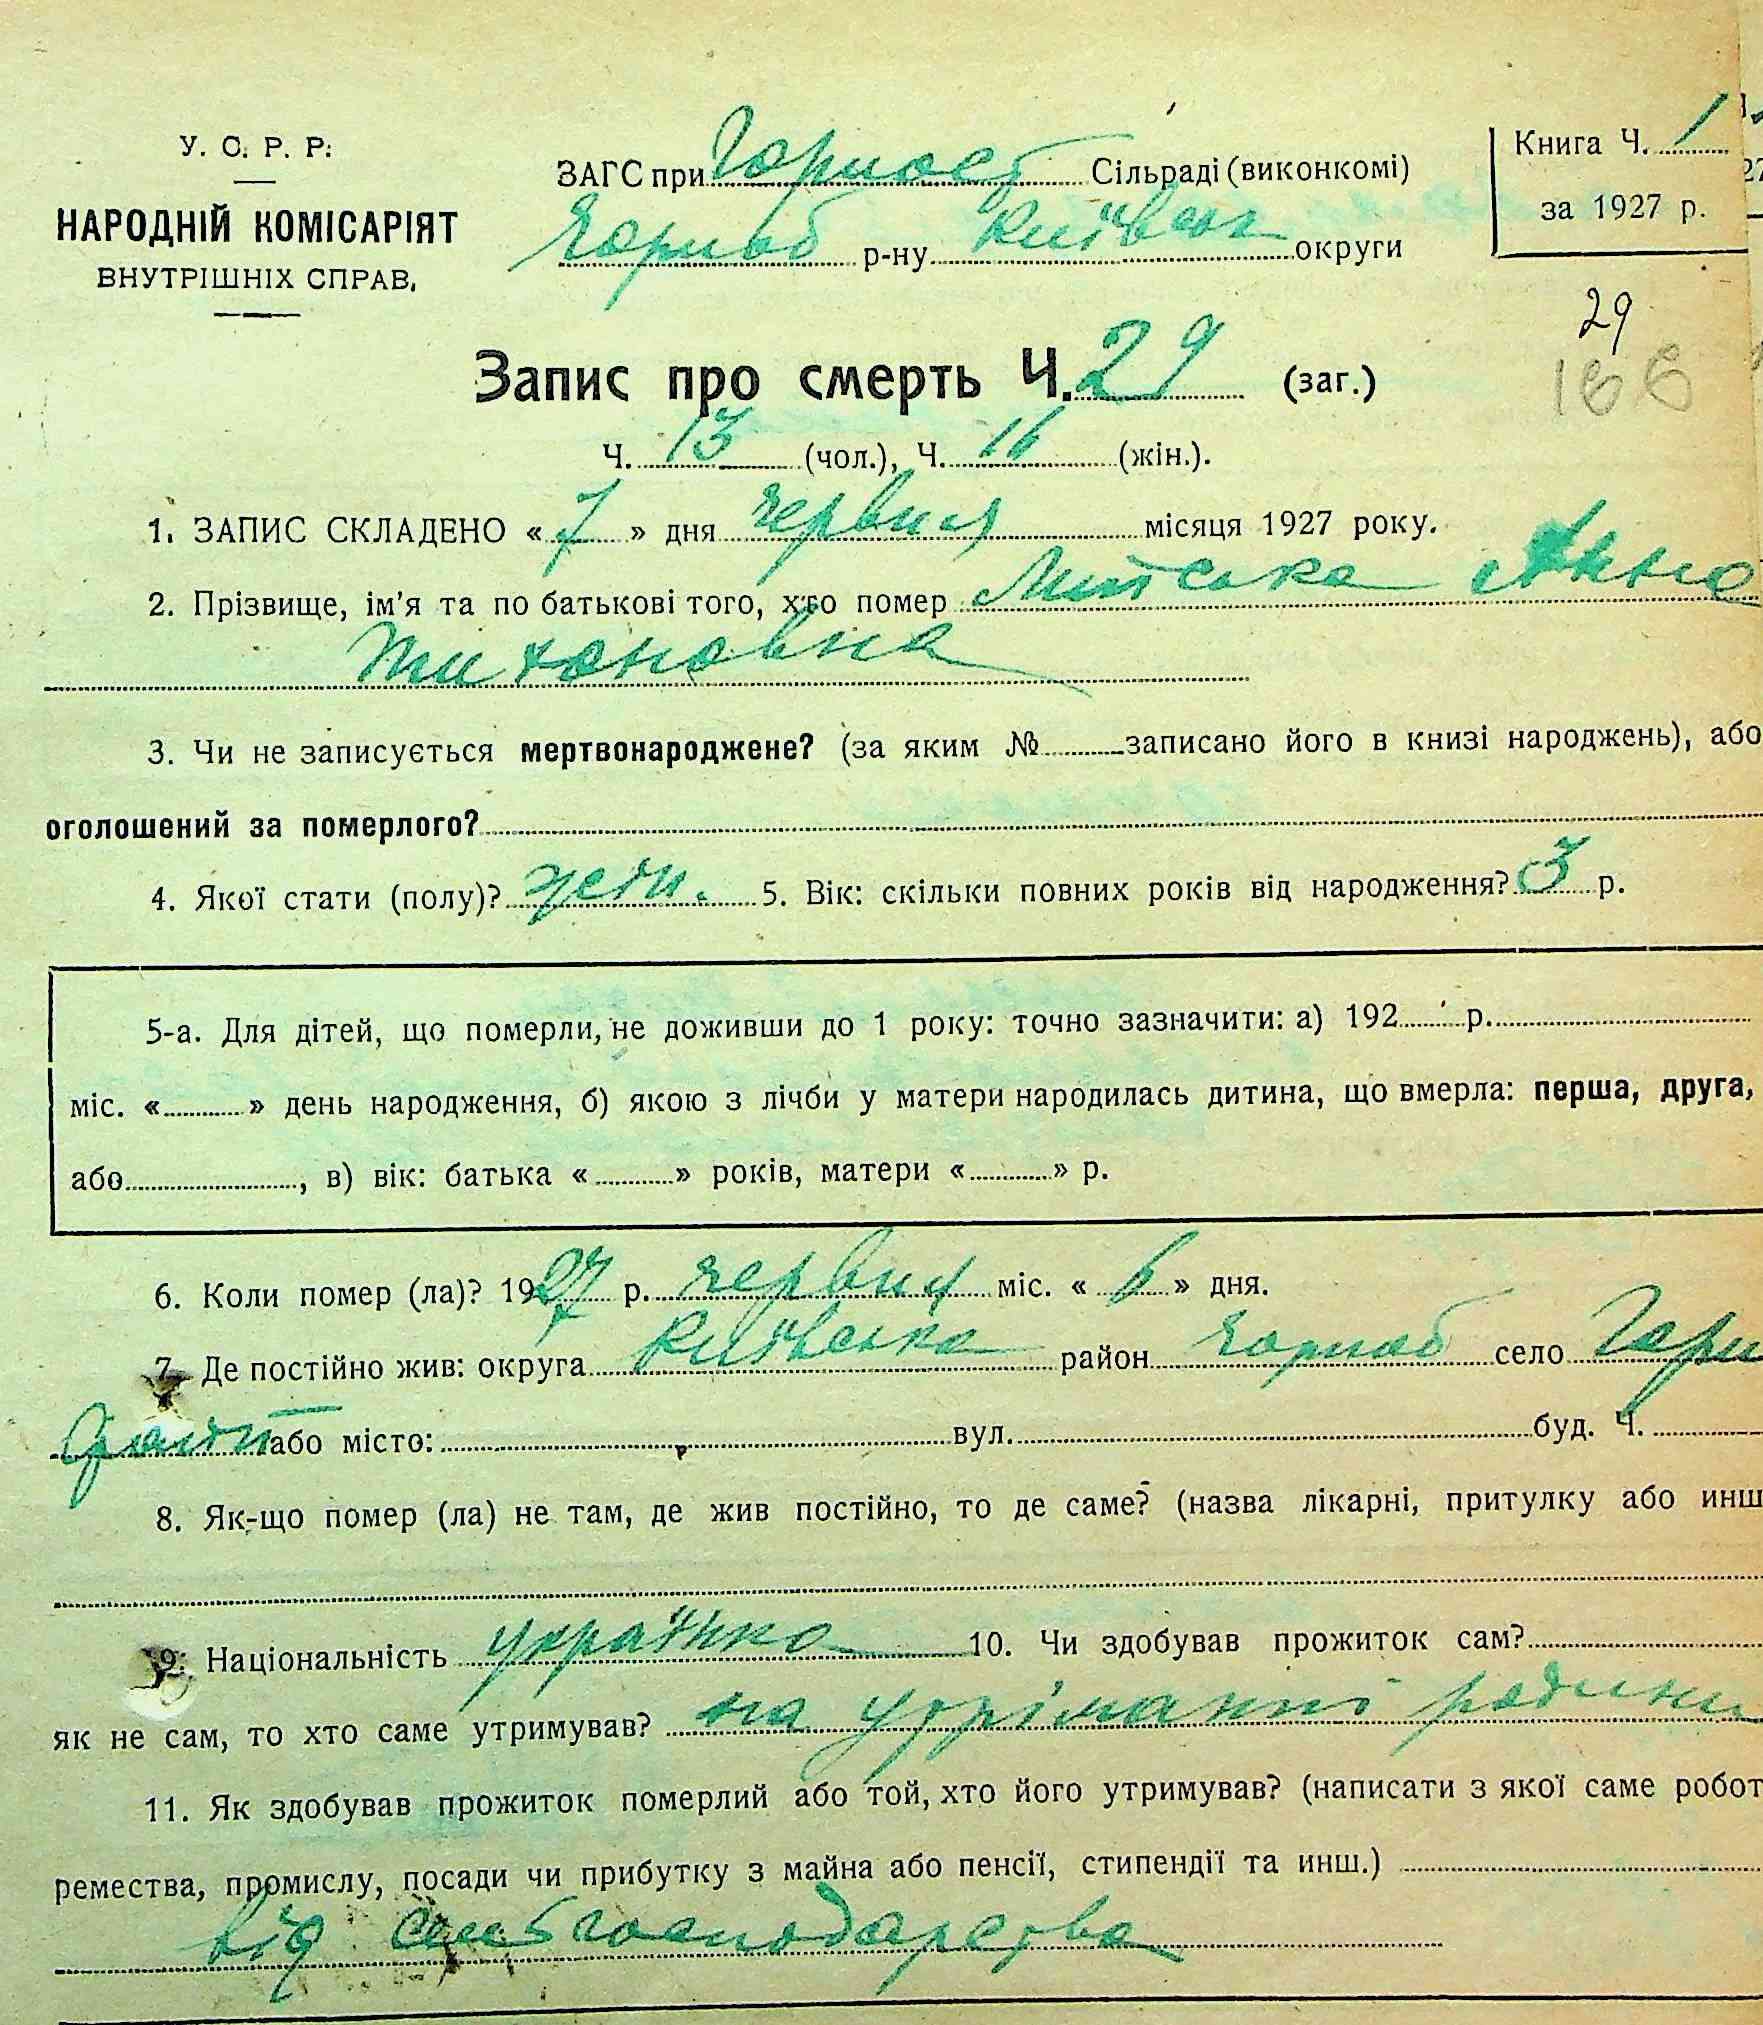 У. С. Р. Р.
НАРОДНІЙ КОМІСАРІЯТ
ВНУТРІШНІХ СПРАВ.
ЗАГС при Горност Сільраді (виконкомі)
Чорноб р-ну Київськ округи
Книга Ч. 1
за 1927 р.
29
166
Запис про смерть Ч. 29 (заг.)
Ч. 13 (чол.), Ч. 16 (жін.).
1. ЗАПИС СКЛАДЕНО « 7 » дня червня місяця 1927 року.
2. Прізвище, ім'я та по батькові того, хто помер Анна
Тихоновна
3. Чи не записується мертвонароджене? (за яким № записано його в книзі народжень), або
оголошений за померлого?
4. Якої стати (полу)? жін. 5. Вік: скільки повних років від народження? 3 р.
5-а. Для дітей, що померли, не доживши до 1 року: точно зазначити: а) 192 р.
міс. « » день народження, б) якою з лічби у матери народилась дитина, що вмерла: перша, друга,
або , в) вік: батька « » років, матери « » р.
6. Коли помер (ла)? 1927 р. червня міс. « 6 » дня.
7. Де постійно жив: округа Київська район Чорноб село Горн
або місто: вул. буд. Ч.
8. Як-що помер (ла) не там, де жив постійно, то де саме? (назва лікарні, притулку або инш
9. Національність українка 10. Чи здобував прожиток сам?
як не сам, то хто саме утримував? на утріманні родини
11. Як здобував прожиток померлий або той, хто його утримував? (написати з якої саме робот
ремества, промислу, посади чи прибутку з майна або пенсії, стипендії та инш.)
від сільгосподарства